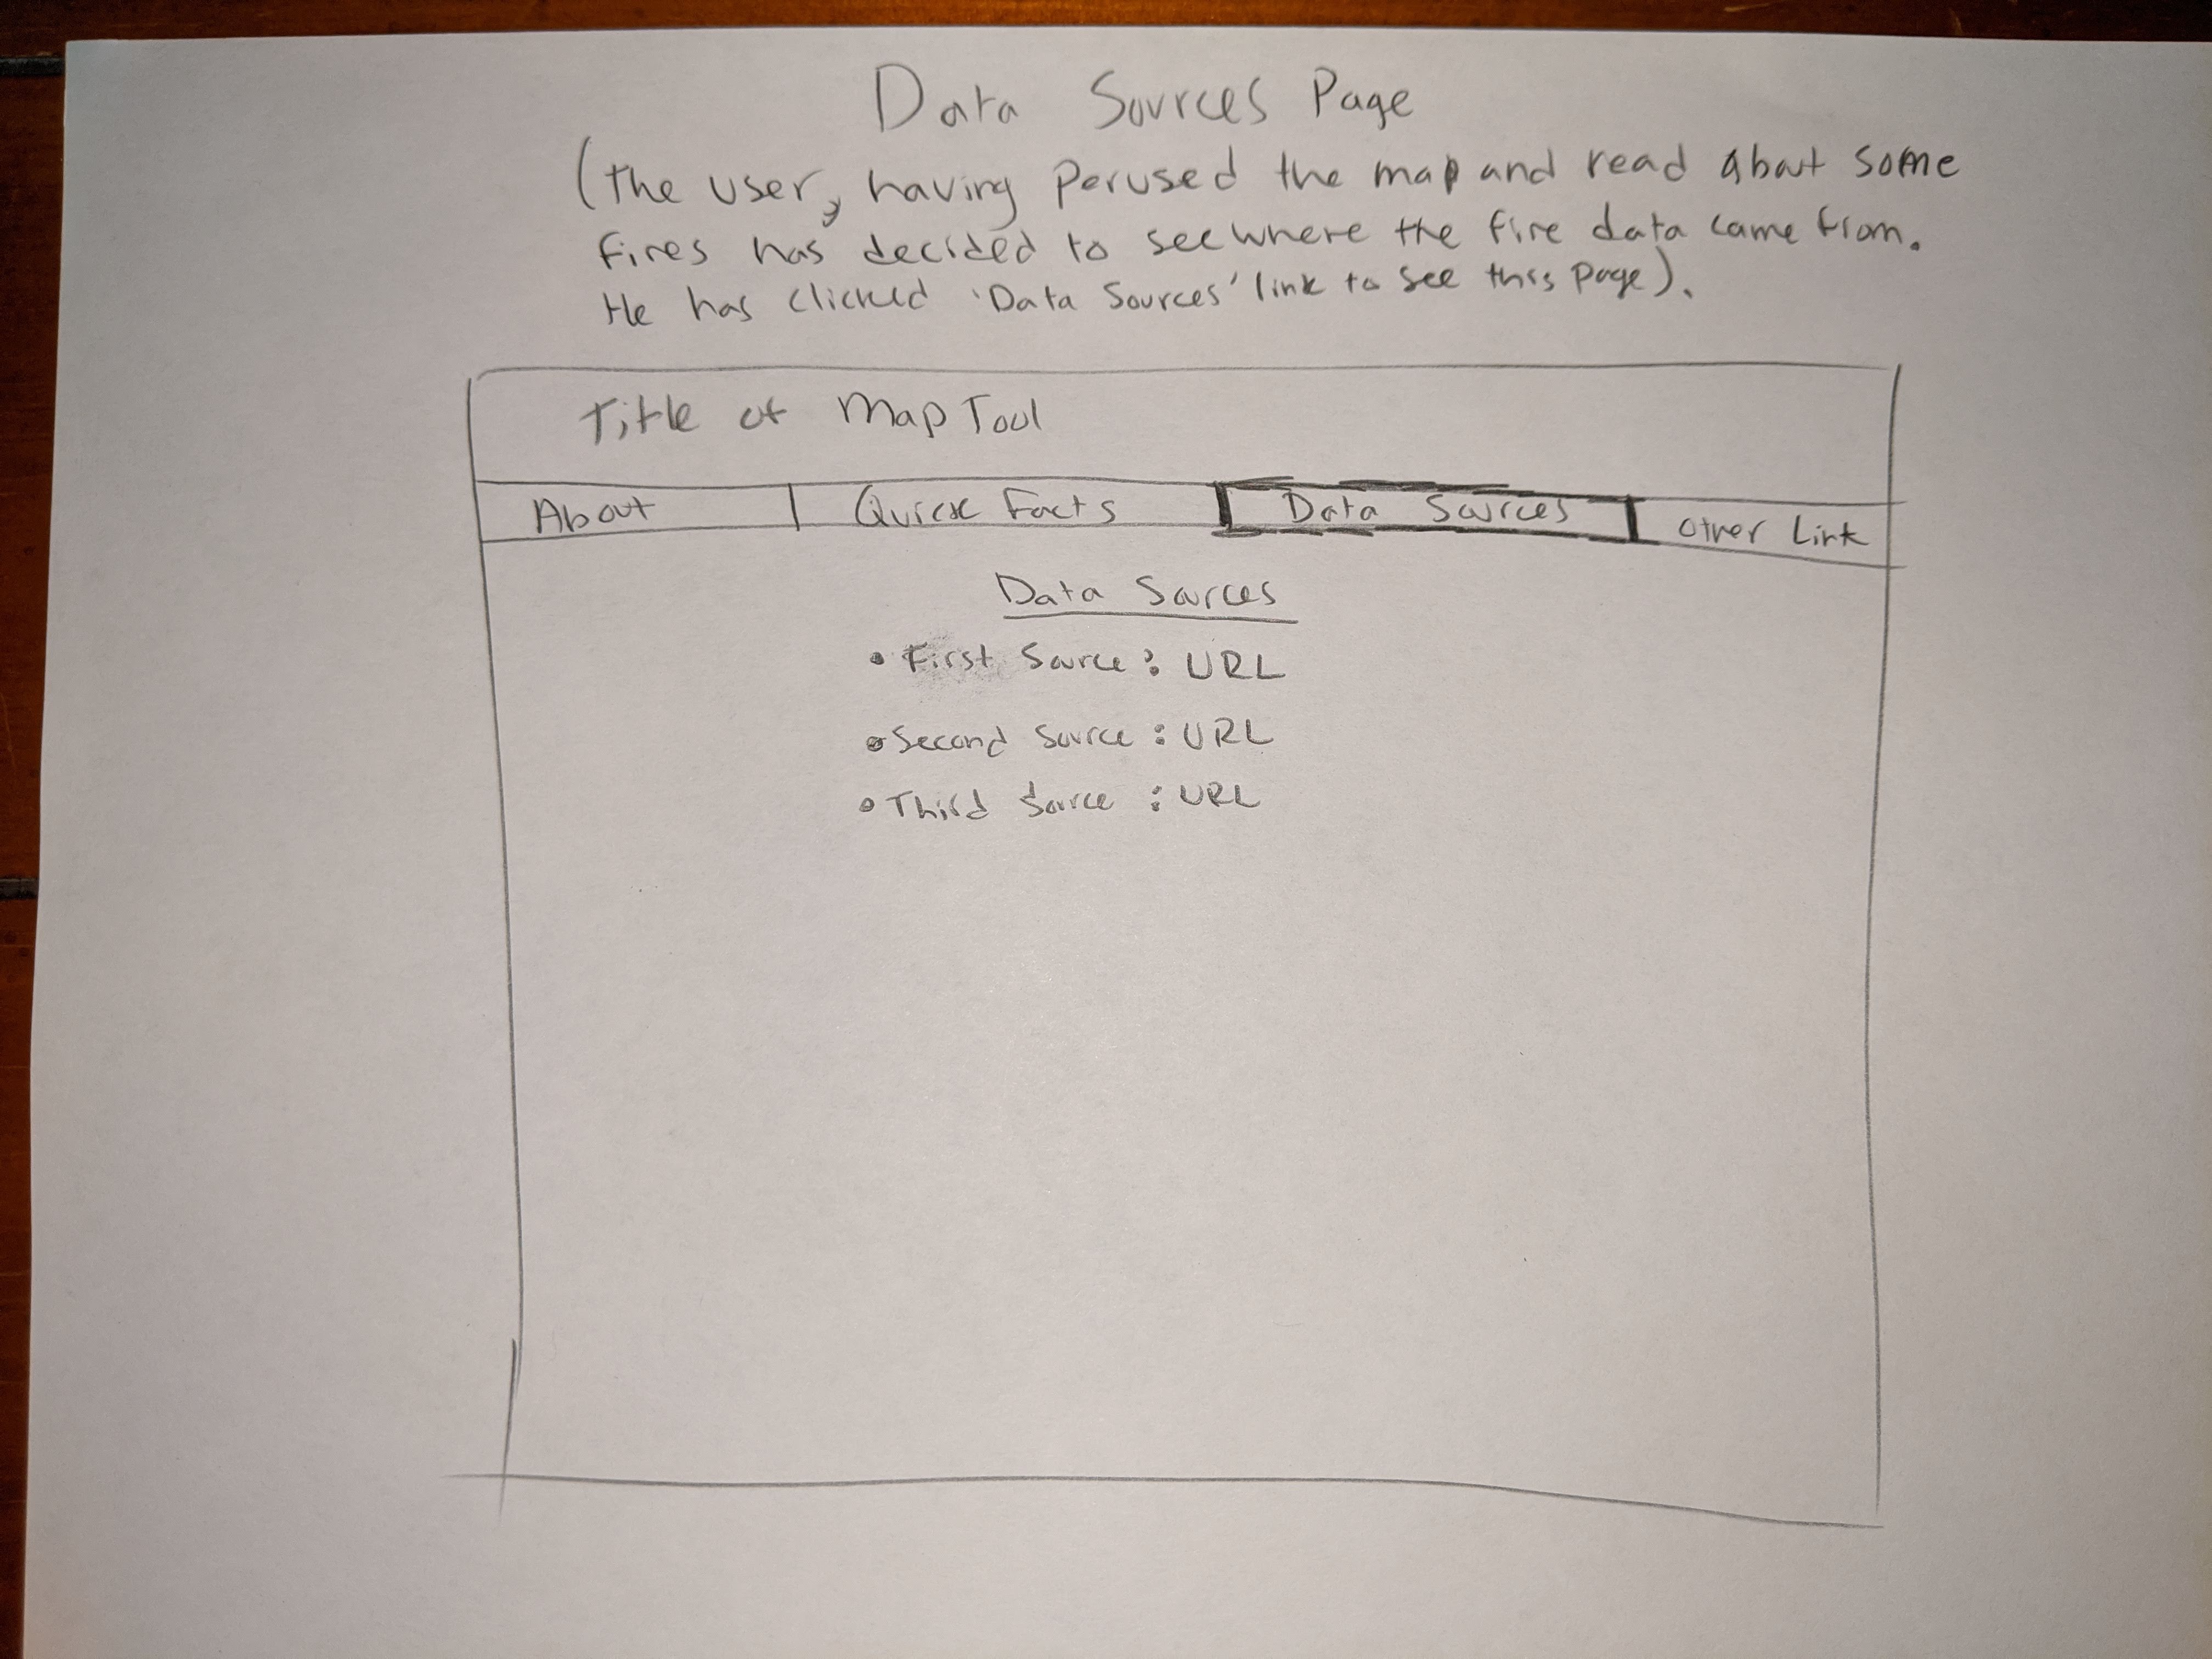 Data Sources Page
(the user, having perused the map and read about some
fires has decided to see where the fire data came from.
He has clicked 'Data Sources' link to see this page).
Title of Map Tool
About | Quick Facts | Data Sources | Other Link
Data Sources
• First Source: URL
• Second Source: URL
• Third Source: URL